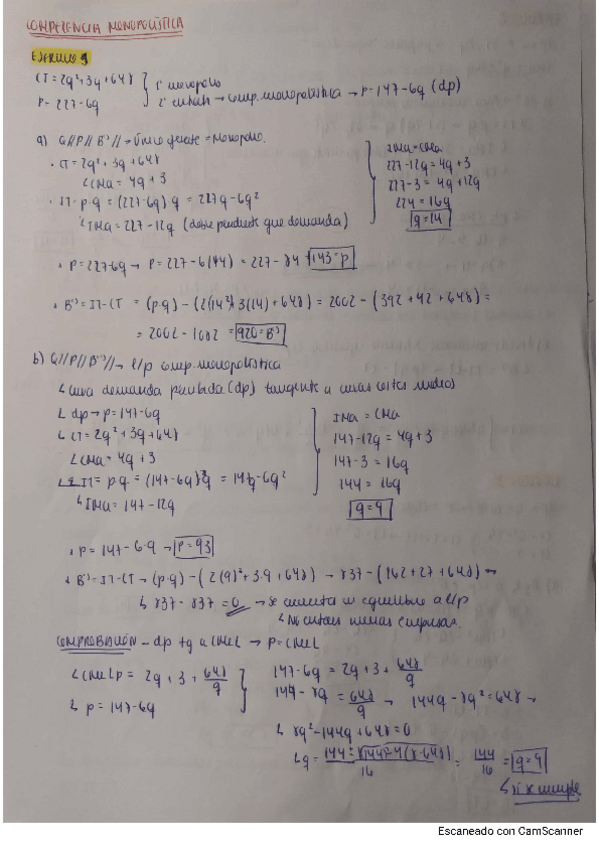 COMPETENCIA MONOPOLÍSTICA
EJERCICIO 9
CT = 2q² + 3q + 648 } 1º monopolio
P = 227 - 6q } 2º entran → comp. monopolística → P = 147 - 6q (dp)
a) q // P // Bº // → único oferente = Monopolio.
· CT = 2q² + 3q + 648
↳ CMa = 4q + 3
· IT = p·q = (227 - 6q) q = 227q - 6q²
↳ IMa = 227 - 12q (doble pendiente que demanda)
IMa = CMa
227 - 12q = 4q + 3
227 - 3 = 4q + 12q
224 = 16q
q = 14
· P = 227 - 6q → P = 227 - 6(14) = 227 - 84 = 143 = P
· Bº = IT - CT = (p·q) - (2(14²) + 3(14) + 648) = 2002 - (392 + 42 + 648) =
= 2002 - 1082 = 920 = Bº
b) q // P // Bº // → l/p comp. monopolística
↳ curva demanda percibida (dp) tangente a curvas costes medios
↳ dp → p = 147 - 6q
↳ CT = 2q² + 3q + 648
↳ CMa = 4q + 3
↳ IT = p·q = (147 - 6q) q = 147q - 6q²
↳ IMa = 147 - 12q
IMa = CMa
147 - 12q = 4q + 3
147 - 3 = 16q
144 = 16q
q = 9
· P = 147 - 6·9 → P = 93
· Bº = IT - CT → (p·q) - (2(9)² + 3·9 + 648) → 837 - (162 + 27 + 648) →
↳ 837 - 837 = 0 → se encuentra en equilibrio a l/p
↳ No entran nuevas empresas.
COMPROBACIÓN - dp tg a CMeL → P = CMeL
↳ CMeLp = 2q + 3 + 648/q
↳ p = 147 - 6q
147 - 6q = 2q + 3 + 648/q
144 - 8q = 648/q → 144q - 8q² = 648 →
↳ 8q² - 144q + 648 = 0
↳ q = 144 ± √144² - 4(8·648) / 16 = 144/16 = q = 9
↳ sí se cumple
Escaneado con CamScanner